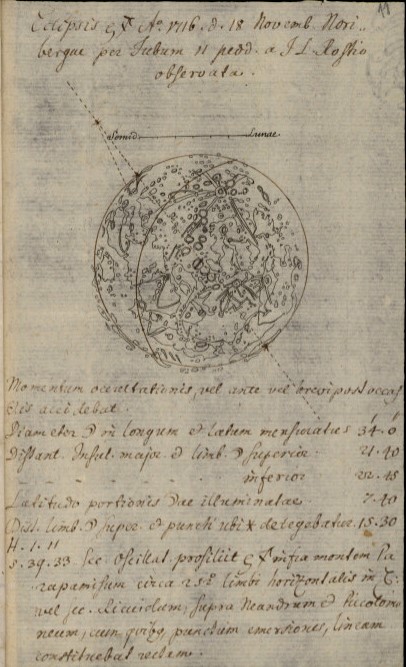 Eclipsis ς ♉ Aº 1716. d. 18 Novemb. Nori-
bergæ per Tubum 11 ped. a J. L. Rostio
observata.
Semid. Lunae.
Momentum occultationis, vel ante vel brevi post occas
accidebat.
Diameter ☽ in longum et latum mensuratus 34. 0
Distant. Insul. major. et limb. ☽ superior. 21. 40
inferior 22. 45
Latitudo portionis illuminatae. 7. 40
Dist. limb. ☽ super. et puncti ubi * detegebatur. 15. 30
H. 1. 11
5. 39. 33 Sec. Oscillat. prosiliit ς ♉ infra montem Ca
circa limbi horizontalis in
vel sc. Ricciolum, supra Neandrum et Piccolomi
neum, cum quibus punctum emersionis, lineam
constituebat rectam.